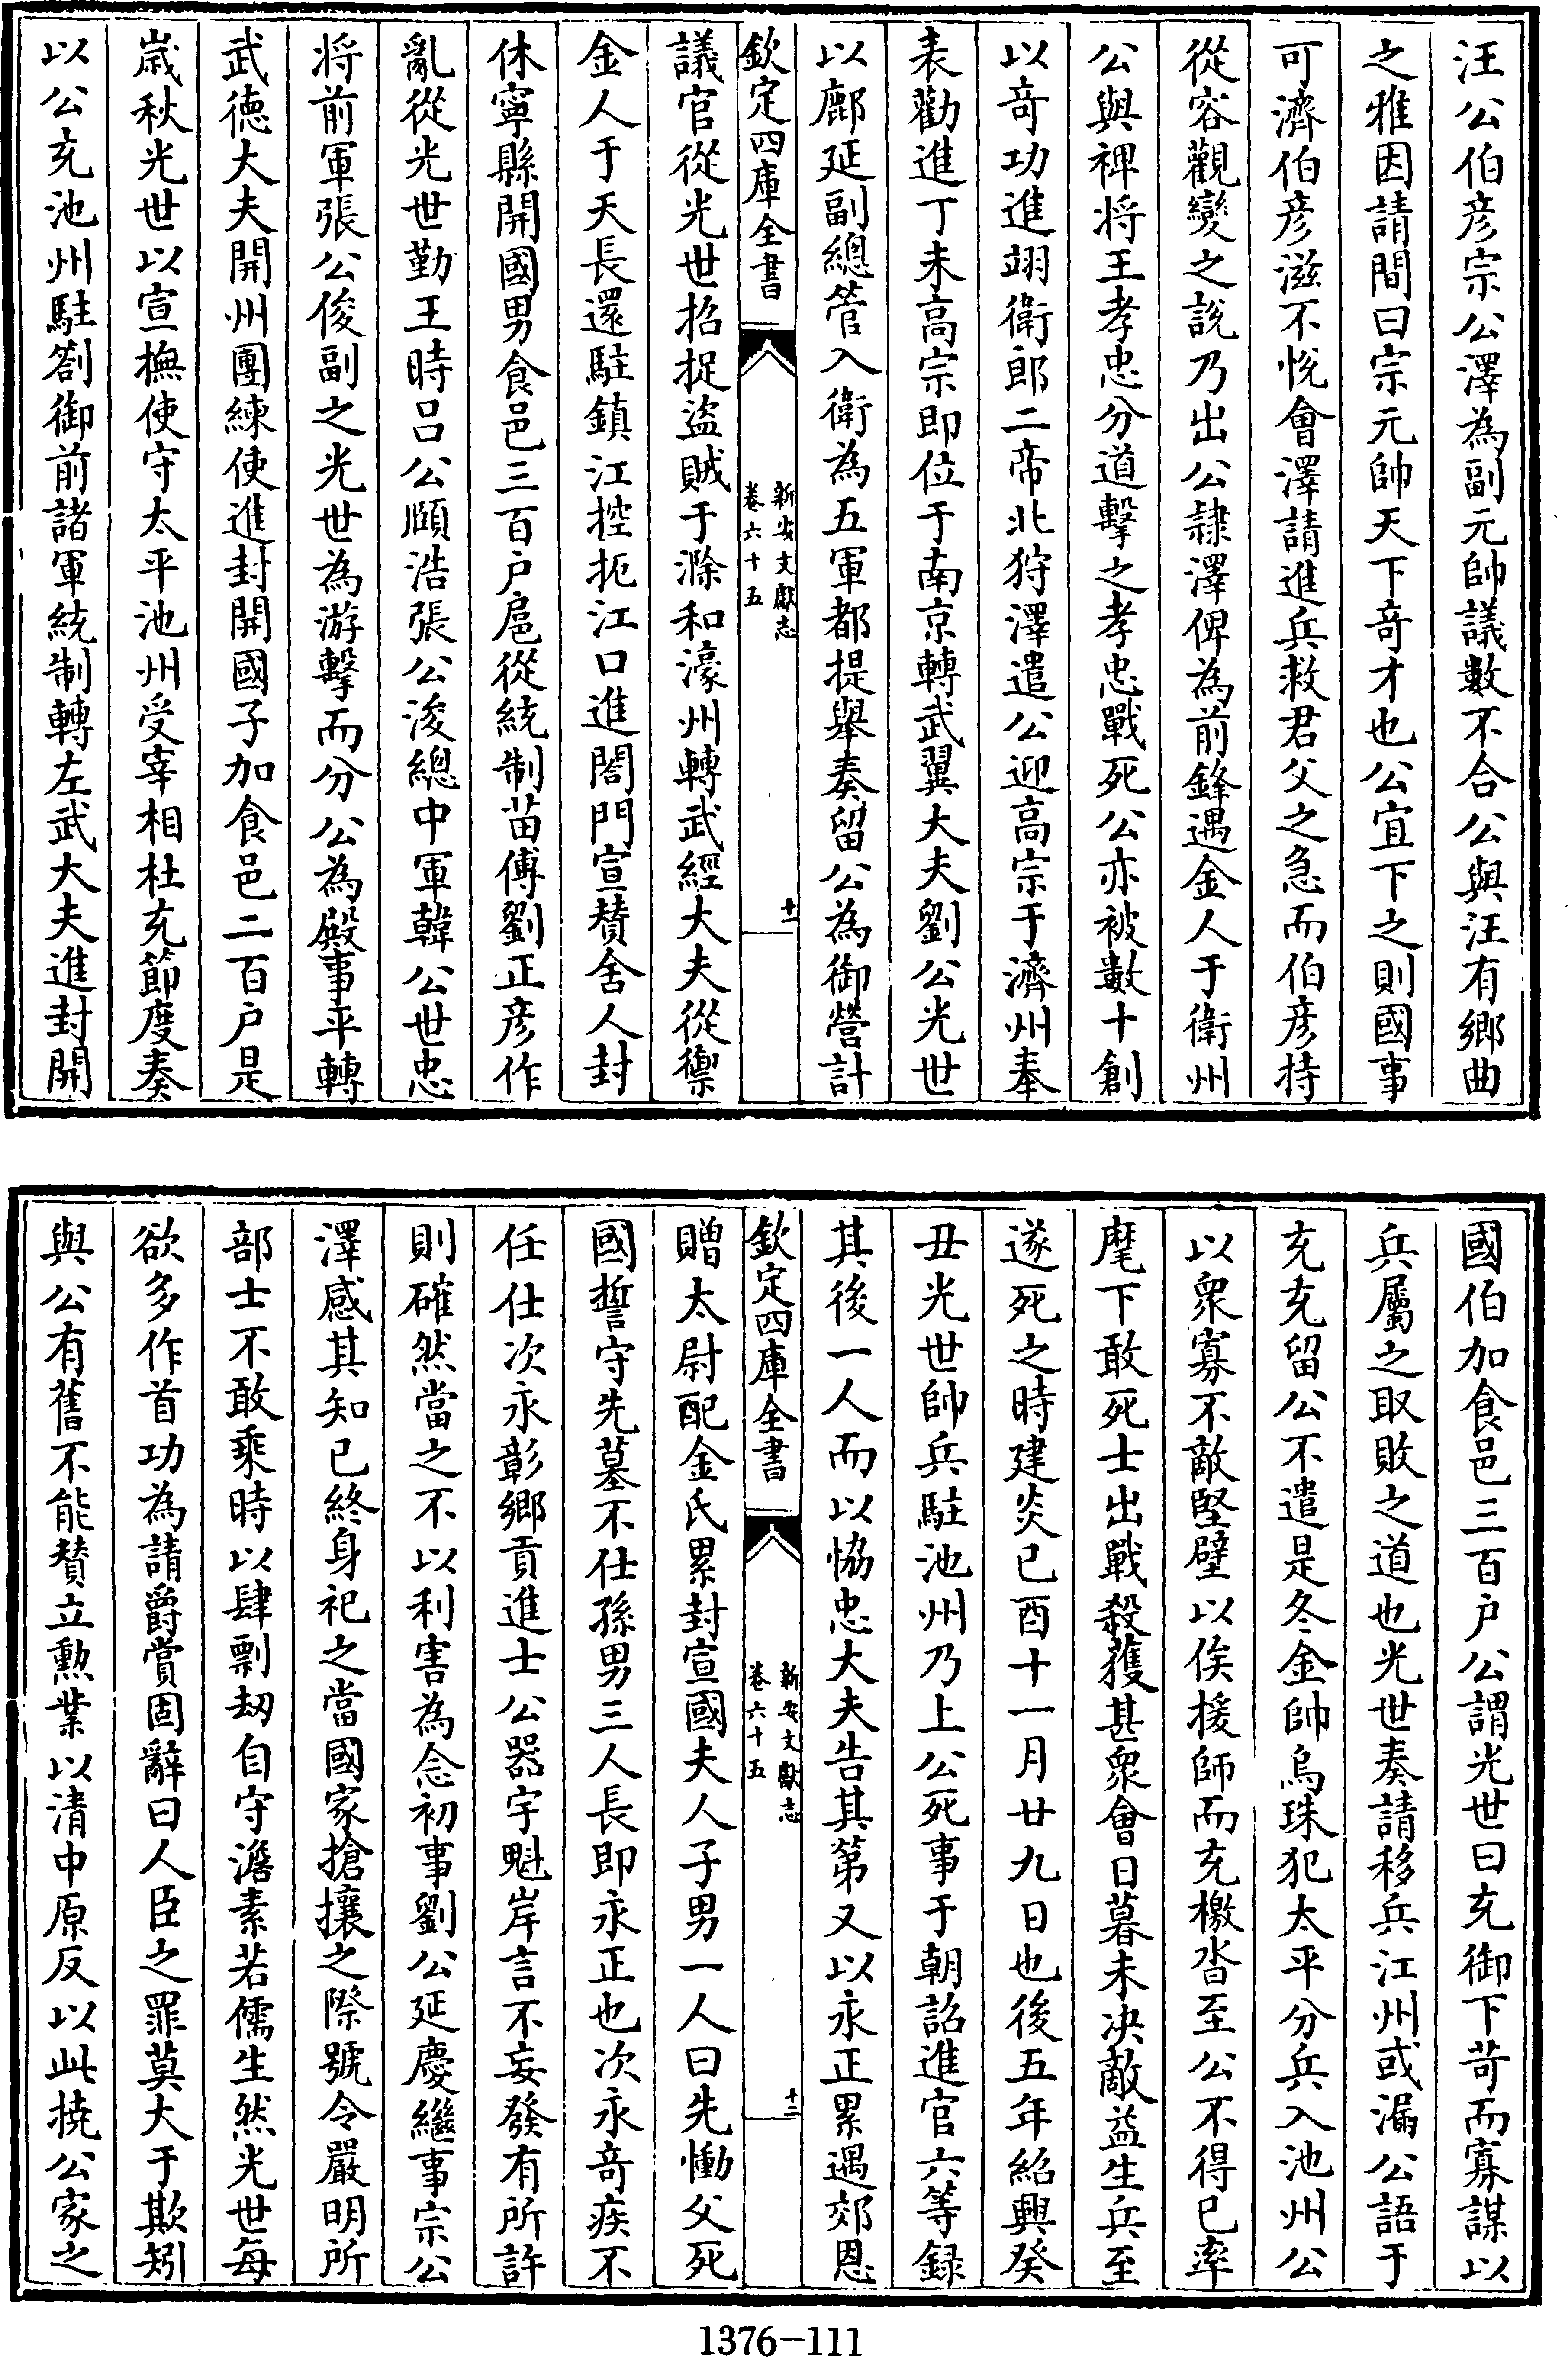 汪公伯彦宗公澤為副元帥議數不合公與汪有鄉曲
之雅因請間曰宗元帥天下竒才也公宜下之則國事
可濟伯彦滋不悅會澤請進兵救君父之急而伯彦持
從容觀變之說乃出公隷澤俾為前鋒遇金人于衛州
公與禆將王孝忠分道擊之孝忠戰死公亦被數十創
以竒功進翊衛郎二帝北狩澤遣公迎高宗于濟州奉
表勸進丁未高宗即位于南京轉武翼大夫劉公光世
以鄜延副總管入衛為五軍都提舉奏留公為御營計
欽定四庫全書
新安文獻志
卷六十五
十一
議官從光世招捉盜賊于滁和濠州轉武經大夫從禦
金人于天長還駐鎮江控扼江口進閤門宣賛舍人封
休寧縣開國男食邑三百户扈從統制苗傅劉正彦作
亂從光世勤王時吕公頤浩張公浚總中軍韓公世忠
將前軍張公俊副之光世為游擊而分公為殿事平轉
武德大夫開州團練使進封開國子加食邑二百户是
嵗秋光世以宣撫使守太平池州受宰相杜充節度奏
以公充池州駐劄御前諸軍統制轉左武大夫進封開
國伯加食邑三百户公謂光世曰充御下苛而寡謀以
兵屬之取敗之道也光世奏請移兵江州或漏公語于
充充留公不遣是冬金帥烏珠犯太平分兵入池州公
以衆寡不敵堅壁以俟援師而充檄沓至公不得已率
麾下敢死士出戰殺獲甚衆會日暮未决敵益生兵至
遂死之時建炎已酉十一月廿九日也後五年紹興癸
丑光世帥兵駐池州乃上公死事于朝詔進官六等録
其後一人而以恊忠大夫告其第又以永正累遇郊恩
欽定四庫全書
新安文獻志
卷六十五
十二
贈太尉配金氏累封宣國夫人子男一人曰先慟父死
國誓守先墓不仕孫男三人長即永正也次永竒疾不
任仕次永彰鄉貢進士公器宇魁岸言不妄發有所許
則確然當之不以利害為念初事劉公延慶繼事宗公
澤感其知已終身祀之當國家搶攘之際號令嚴明所
部士不敢乘時以肆剽刼自守澹素若儒生然光世每
欲多作首功為請爵賞固辭曰人臣之罪莫大于欺矧
與公有舊不能賛立勲業以清中原反以此撓公家之
1376-111